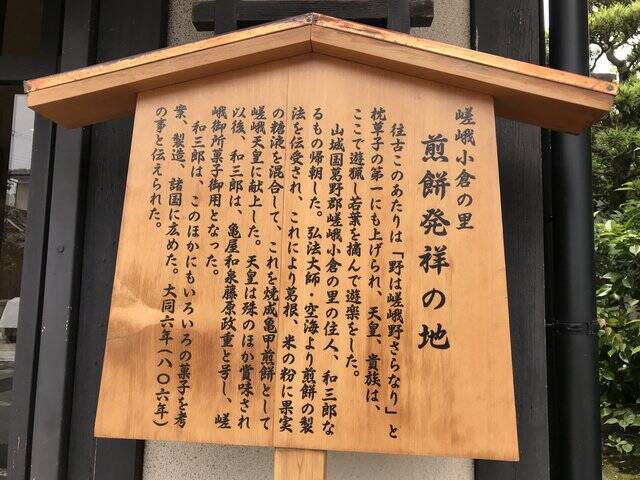 嵯峨小倉の里
煎餅発祥の地
往古このあたりは「野は嵯峨野さらなり」と
枕草子の第一にも上げられ、天皇、貴族は、
ここで遊猟し若葉を摘んで遊楽をした。
山城国葛野郡嵯峨小倉の里の住人、和三郎な
るもの帰朝した。弘法大師・空海より煎餅の製
法を伝受され、これにより葛根、米の粉に果実
の糖液を混合して、これを焼成亀甲煎餅として
嵯峨天皇に献上した。天皇は殊のほか賞味され
以後、和三郎は、亀屋和泉藤原政重と号し、嵯
峨御所菓子御用となった。
和三郎は、このほかにもいろいろの菓子を考
案、製造、諸国に広めた。大同六年（八〇六年）
の事と伝えられた。